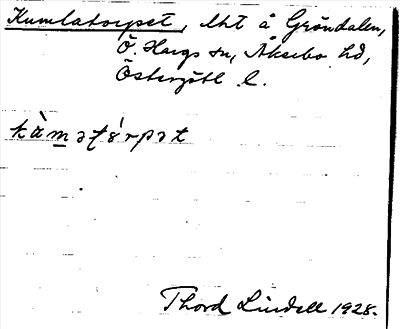 Kumlatorpet, lht å Gröndalen,
Ö. Hargs sn, Åkerbo hd,
Östergötl. l.
Thord Lindell 1928.